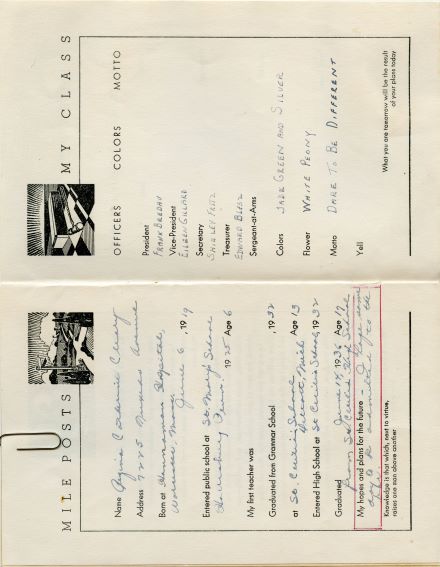 MILE POSTS
Name Regina Catherine Cleary
Address 7225 Avenue
Born at Hannaman Hospital,
Worcester, Mass.
June 6, 1919
Entered public school at St. Mary's School
Harrisburg Penn. 1925 Age 6
My first teacher was
Graduated from Grammar School , 1932
at St. Cecilia's School Age 13
Detroit, Mich
Entered High School at St Cecilia's School, 1932
Graduated June 14, 1936 Age 17
from St Cecilia High School
My hopes and plans for the future – I hope some
day to be admitted to the
bar.
Knowledge is that which, next to virtue,
raises one man above another
MY CLASS
OFFICERS COLORS MOTTO
President
FRANK BREDAU
Vice-President
EILEEN GILLARD
Secretary
SHIRLEY FRITZ
Treasurer
EDWARD
Sergeant-at-Arms
Colors JADE GREEN AND SILVER
Flower WHITE PEONY
Motto DARE TO BE DIFFERENT
Yell
What you are tomorrow will be the result
of your plans today